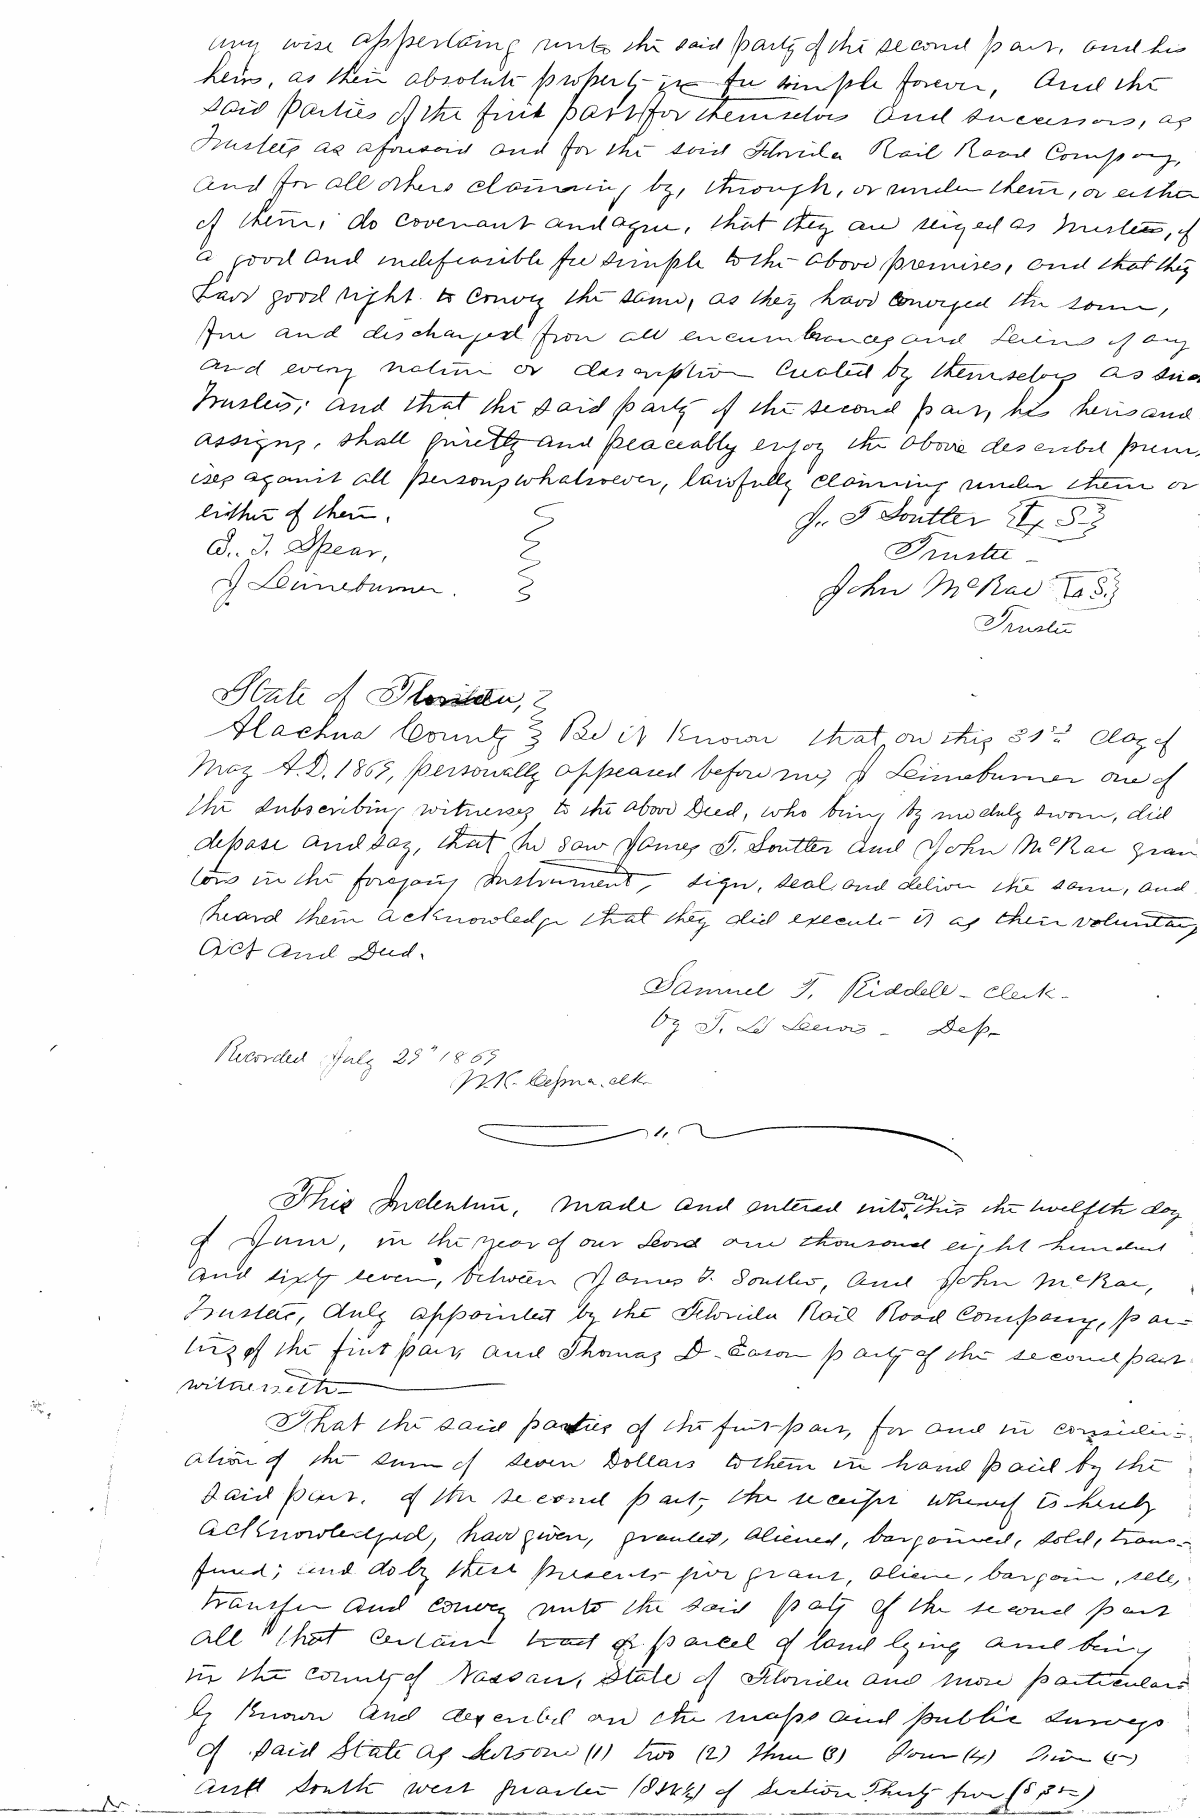 any wise appertaing unto the said party of the second part, and his
heirs, as their absolute property in fee simple forever, And the
said Parties of the first part for themselves and successors, as
Trustees as aforesaid and for the said Florida Rail Road Company,
and for all others claiming by, through, or under them, or either
of them; do covenant and agree, that they are seized as Trustees, of
a good and indefeasible fee simple to the above premises, and that they
have good right to convey the same, as they have conveyed the same,
free and discharged from all encumbrances and Leins of any
and every nature or description created by themselves as such
Trustees; and that the said party of the second part, his heirs and
assigns, shall quietly and peaceably enjoy the above described prem-
ises against all persons whatsoever, lawfully claiming under them or
either of them.
J. T Soutter {L. S.}
T. Spear,
Trustee
J Leineburner.
John McRae {L S.}
Trustee
State of Florida,
Alachua County } Be it Known that on this 31st day of
May A.D. 1869, personally appeared before me, J Leineburner one of
the subscribing witnesses to the above Deed, who being by me duly sworn, did
depose and say, that he saw James T. Soutter and John McRae gran
tors in the foregoing Instrument, sign, seal and deliver the same, and
heard them acknowledge that they did execute it as their voluntary
Act and Deed.
Samuel T. Riddell - Clerk -
by T. Lewis - Dep-
Recorded July 29" 1869
clk
This Indenture, made and entered into on this the twelfth day
of June, in the year of our Lord one thousand eight hundred
and sixty seven, between James T. Soutter, and John McRae,
Trustees, duly appointed by the Florida Rail Road Company, par=
ties of the first part, and Thomas D. Eason party of the second part
witnesseth
That the said parties of the first part, for and in consider=
ation of the sum of seven Dollars to them in hand paid by the
said part. of the second part, the receipt whereof is hereby
acknowledged, have given, granted, aliened, bargained, sold, trans-
fered; and do by these presents give grant, aliene, bargain, sell,
transfer and convey unto the said paty of the second part
all that certain tract or parcel of land lying and being
in the county of Nassau, State of Florida and more particular
ly Known and described on the maps and public surveys
of said State as Lots one (1) two (2) three (3) Four (4) Five (5)
and south west quarter (SW¼) of Section Thirty five (S 35)